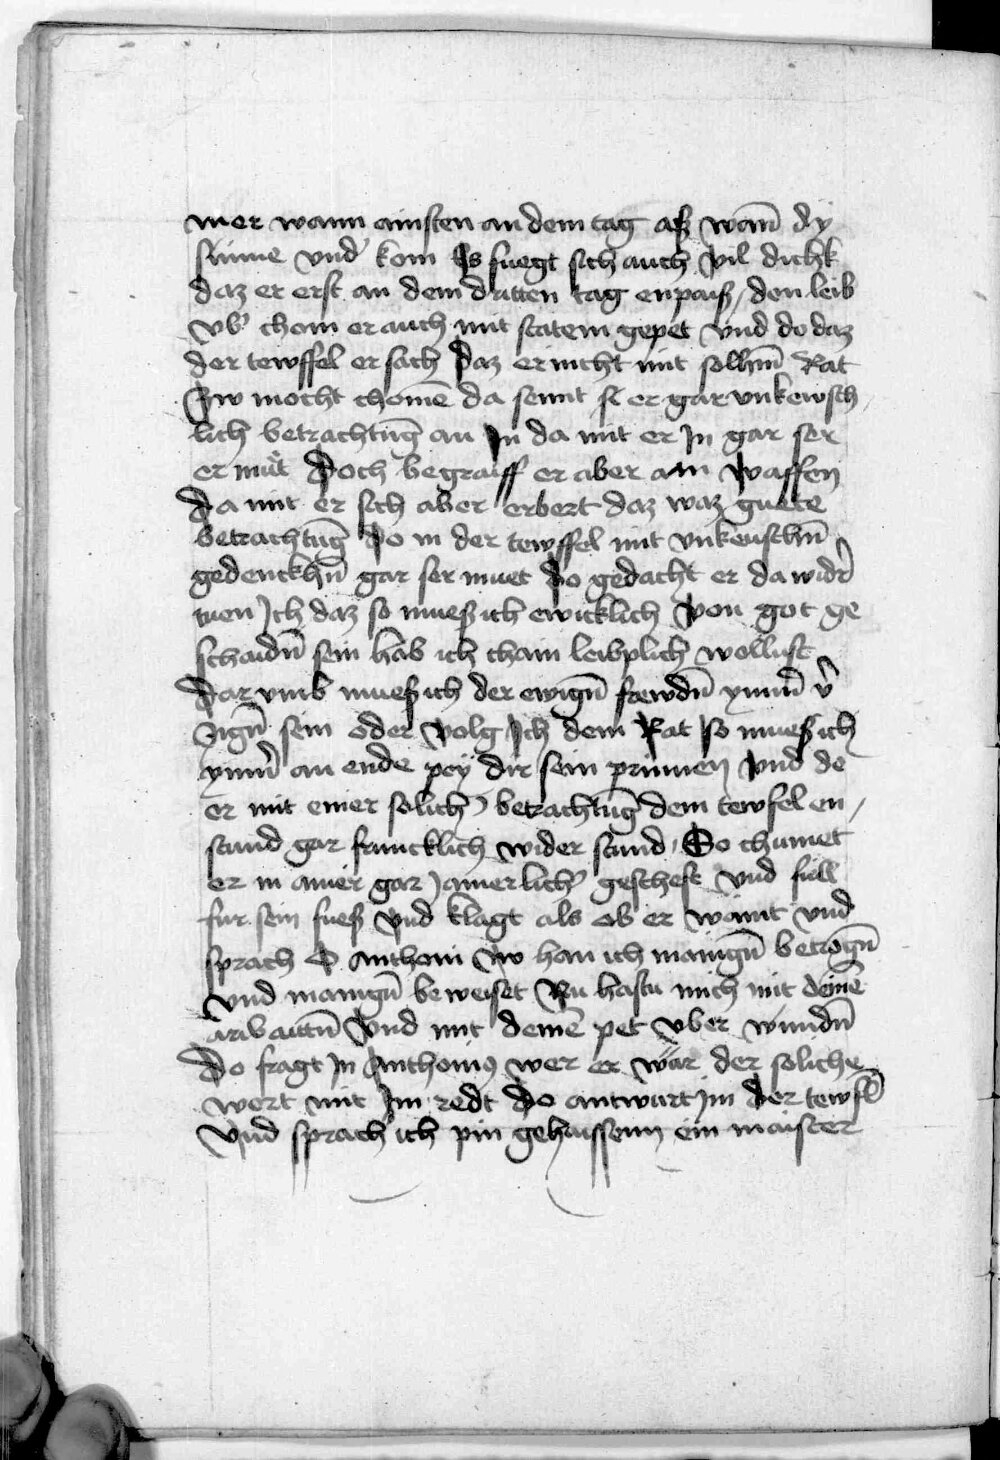 mer wann ainsten an dem tag aß wan̄ dy
sunne vnder kom Es fuegt sich auch vil dichk
daz er erst an dem dritten tag enpaiß / den leib
vb̓ chom er auch mit statem gepet vnd do daz
der tewffel ersach daz er nicht mit solhm̄ Rat
zw mocht chomē da sennt er gar vnkewsch /
lich betrachtūg an In da mit er In gar ser
er muͤt Doch begraiff er aber ain waffen
Da mit er sich aber erbert daz waz guete
betrachtūg do in der tewffel mit vnkeuschn̄
gedenckhn̄ gar ser muet do gedacht er da wider̓
tuen Ich daz so mueß ich ewicklich von got ge
schaidn̄ sein hab ich chain leibplich wollust
Dar vmb mueß ich der ewign̄ frewdn̄ ymm̄ v̓
zign̄ sein oder volg Ich dem Rat so mueß ich
ymm̓ an ende pey dir sein prinnen vnd do
er mit einer solich̓ betrachtūg dem tewfel en /
stund gar frumcklich wider stund / Do chumet
er in ainer gar Jamerlich̓ gescheft vnd fiell
fur sein fueß vnd klagt als ob er waint vnd
sprach O Anthoni Nw han ich manign̄ betrogn̄
vnd manign̄ beweiset Nu hastu mich mit deinē
arbaittn̄ vnd mit deinē pet vber wundn̄
Do fragt In Anthonius wer er wär der soliche
wort mit Im redt Do antwurt Im der tewfl̄
vnd sprach ich pin gehaissenn ein maister